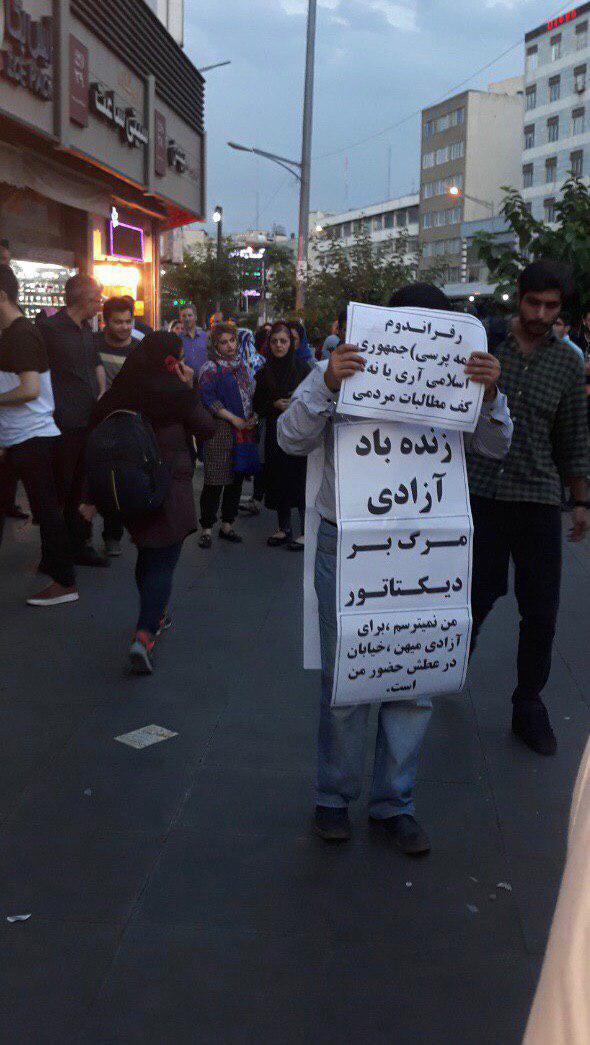 رفراندوم
همه پرسی) جمهوری
اسلامی آری یا نه
کف مطالبات مردمی
زنده باد
آزادی
مرگ بر
دیکتاتور
من نمیترسم ،برای
آزادی میهن ،خیابان
در عطش حضور من
است.